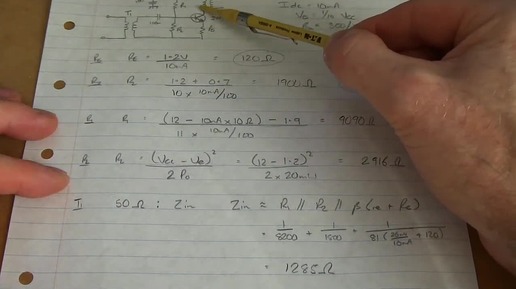 Idc = 10mA
T1
RE RE = 1.2V / 10mA = 120Ω
R2 R2 = 1.2 + 0.7 / 10 x 10mA/100 = 1900Ω
R1 R1 = (12 - 10mA x 10Ω) - 1.9 / 11 x 10mA/100 = 9090Ω
RL = (Vcc - Ve)² / 2 Po = (12 - 1.2)² = 2916Ω
T1 50Ω : Zin Zin ≈ R1 // R2 // β (re + Re)
= 1/8200 + 1/1500 + 1/81 ( + 120)
= 1285Ω